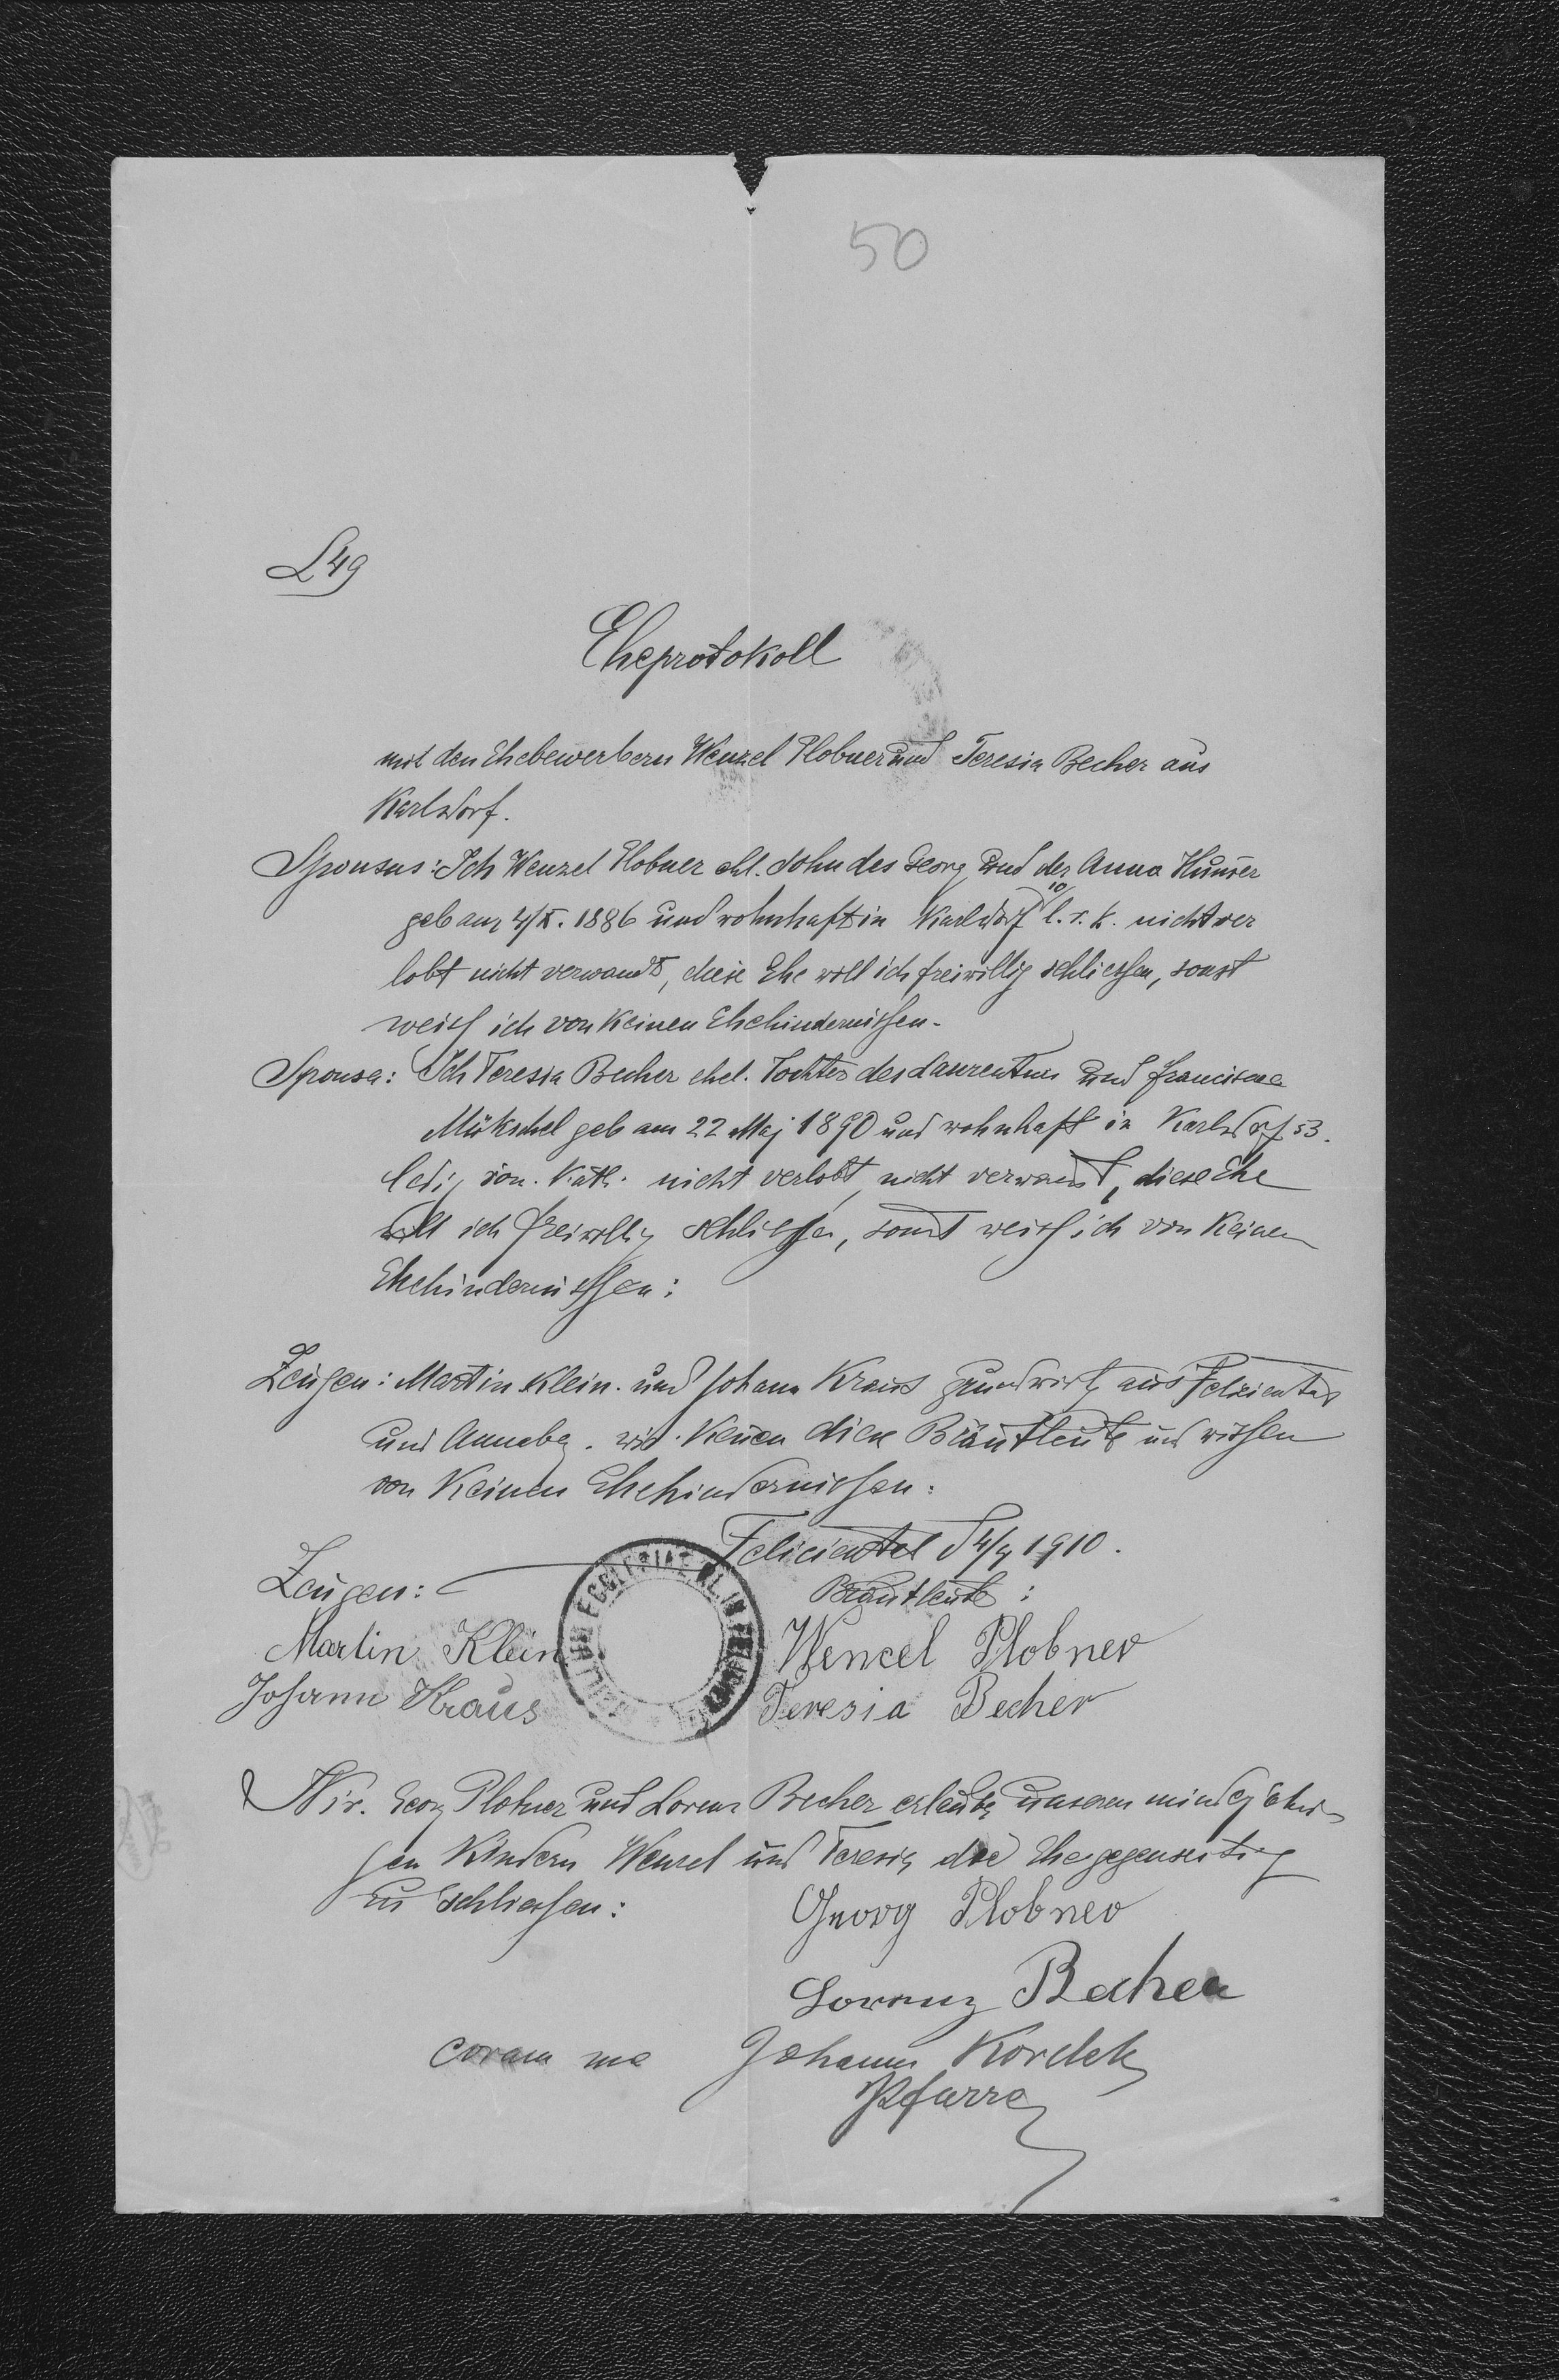 50
L 49
Eheprotokoll
mit den Ehebewerbern Wenzel Plobner und Teresia Becher aus
Karlsdorf.
Sponsus: Ich Wenzel Plobner ehl. Sohn des Georg und der Anna
geb am 4/X. 1886 und wohnhaft in Karlsdorf 10/ l. r. k. nicht ver
lobt nicht verwandt, diese Ehe will ich freiwillig schliessen, sonst
weiss ich von Keinen Ehehindernissen.
Sponsa: Ich Teresia Becher ehel. Tochter des Laurentius und Franciska
geb am 22 Maj 1890 und wohnhaft in Karlsdorf 53.
ledig röm. Kath. nicht verlobt, nicht verwandt, diese Ehe
will ich freiwillig schliessen, sonst weiss ich von Keinen
Ehehindernissen:
Zeugen: Martin Klein. und Johann Kraus Grundwirth aus Felizienthal
und Annabg. wir Kenen diese Brautleute und wissen
von Keinen Ehehindernissen.
Felicientel d 4/9 1910.
Zeugen: Brautleute:
ECCLESIAE
Martin Klein Wencel Plobner
Johann Kraus Teresia Becher
Wir. Georg Plobner und Lorenz Becher erlauben unseren mindejähri-
gen Kindern Wenzel und Teresia die Ehe gegenseitig
zu schliessen:
Georg Plobner
Lorenz Becher
coram me Johann Kordek
Pfarrer